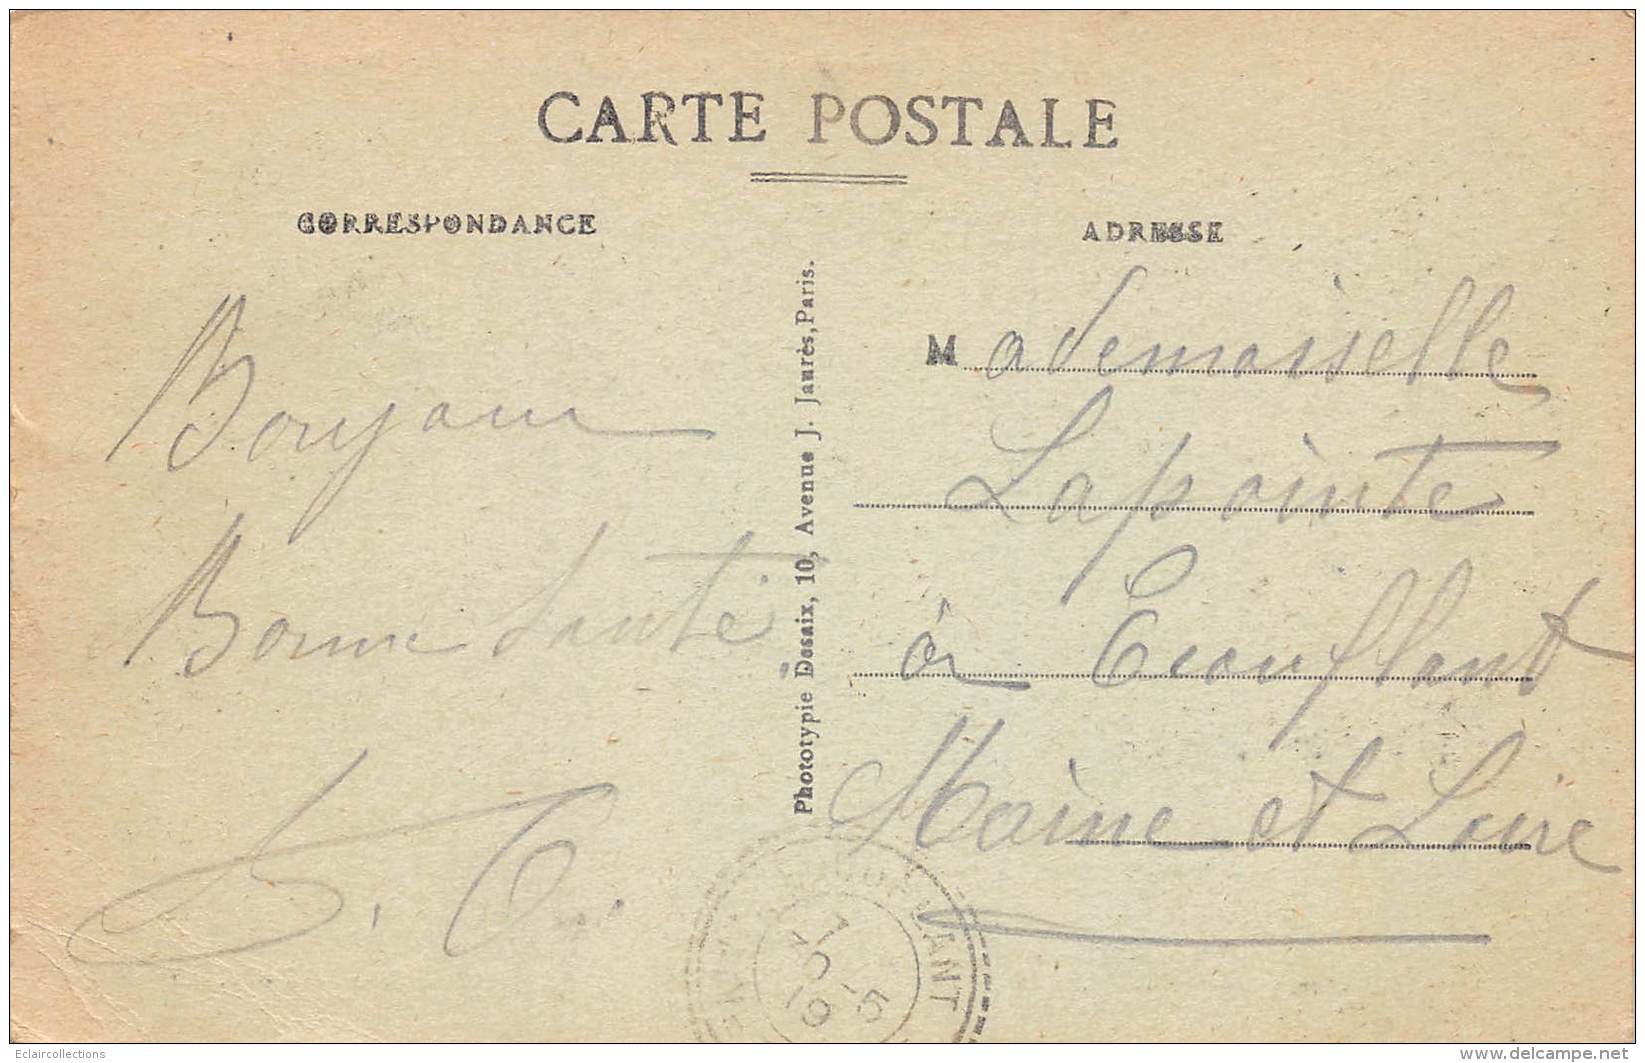 CARTE POSTALE
CORRESPONDANCE
Bonjour
Bonne Santé
Phototypie Desaix, 10, Avenue J. Jaurès, Paris.
ADRESSE
Mademoiselle
Lapointe
à Ecouflant
Maine et Loire
Eclaircollections
www.delcampe.net